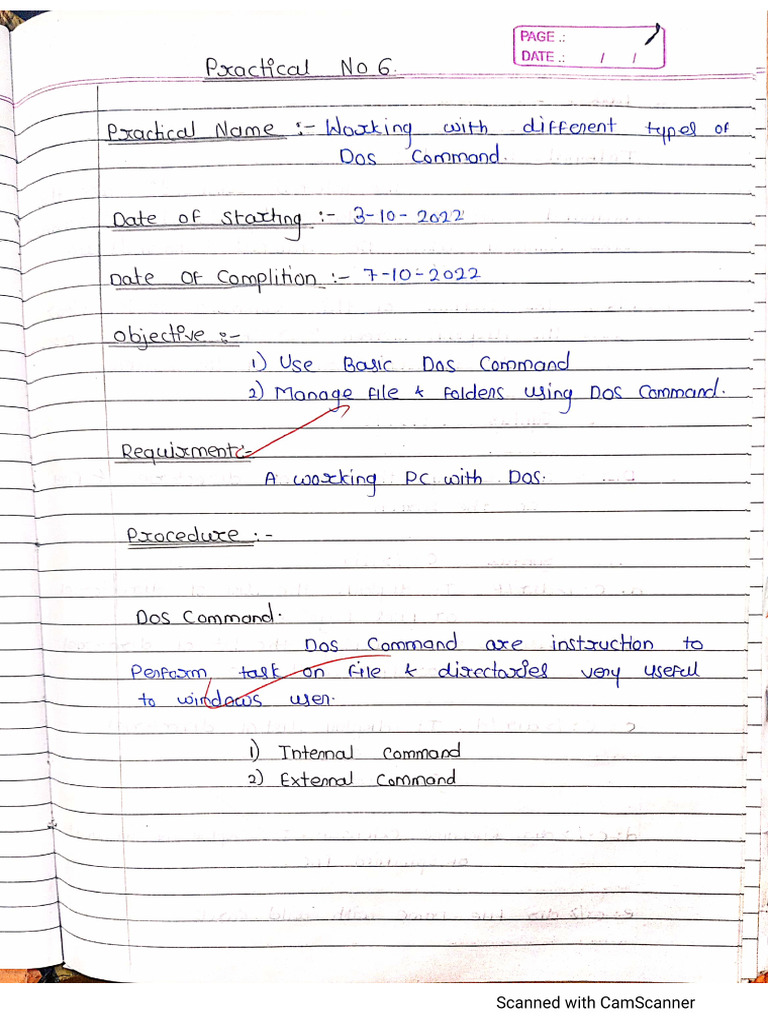 PAGE.:
DATE.: / /
Practical No 6.
Practical Name :- Working with different types of
Dos Command.
Date of Starting :- 3-10-2022
Date of Complition :- 7-10-2022
Objective :-
1) Use Basic Dos Command
2) Manage file & folders using Dos Command.
Requirment :-
A working PC with Dos.
Procedure :-
Dos Command.
Dos Command are instruction to
Perform task on file & directories very useful
to windows user.
1) Internal Command
2) External Command
Scanned with CamScanner